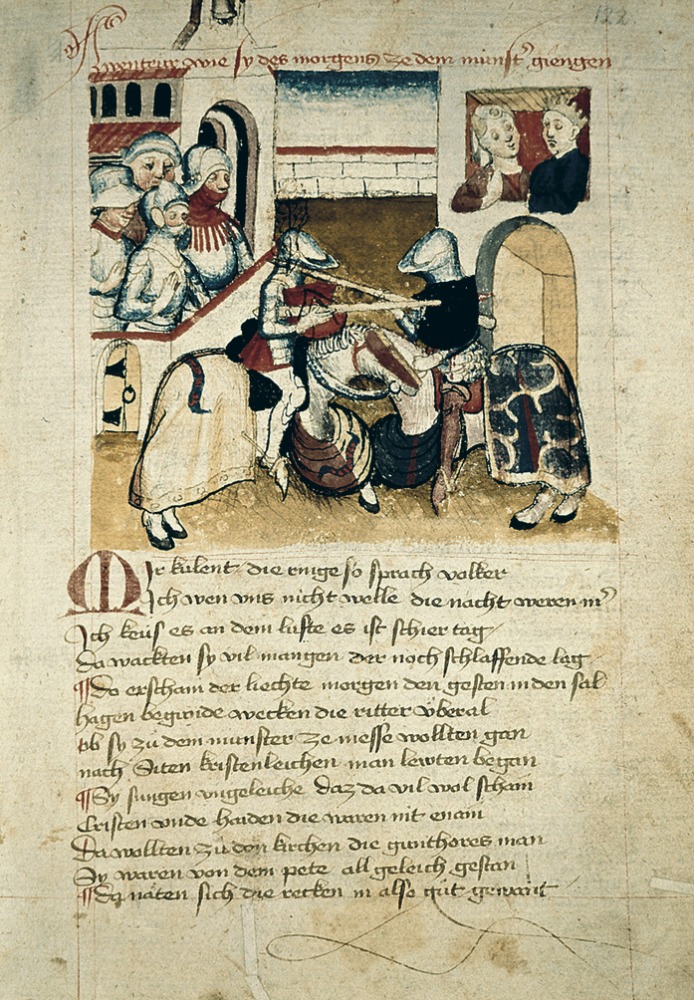 122
Awentewr wie sy des morgens ze dem munst' giengen
Mir kulent die ringe so sprach volker
Ich wen vns nicht welle die nacht weren mer
Ich keus es an dem lufte es ist schier tag
da wackten sy vil mangen der noch schlaffende lag
¶Do erscham der liechte morgen den gesten in den sal
hagen begunde wecken die ritter vberal
ob sy zu dem munster ze messe wollten gan
nach Siten kristenleichen man lewten began
¶Sy sungen vngeleiche daz da vil wol scham
Cristen vnde haiden die waren nit enain
Da wollten zu don kirchen die gunthores man
Sy waren von dem pete all geleich gestan
¶Da naten sich die recken in also gut gewant